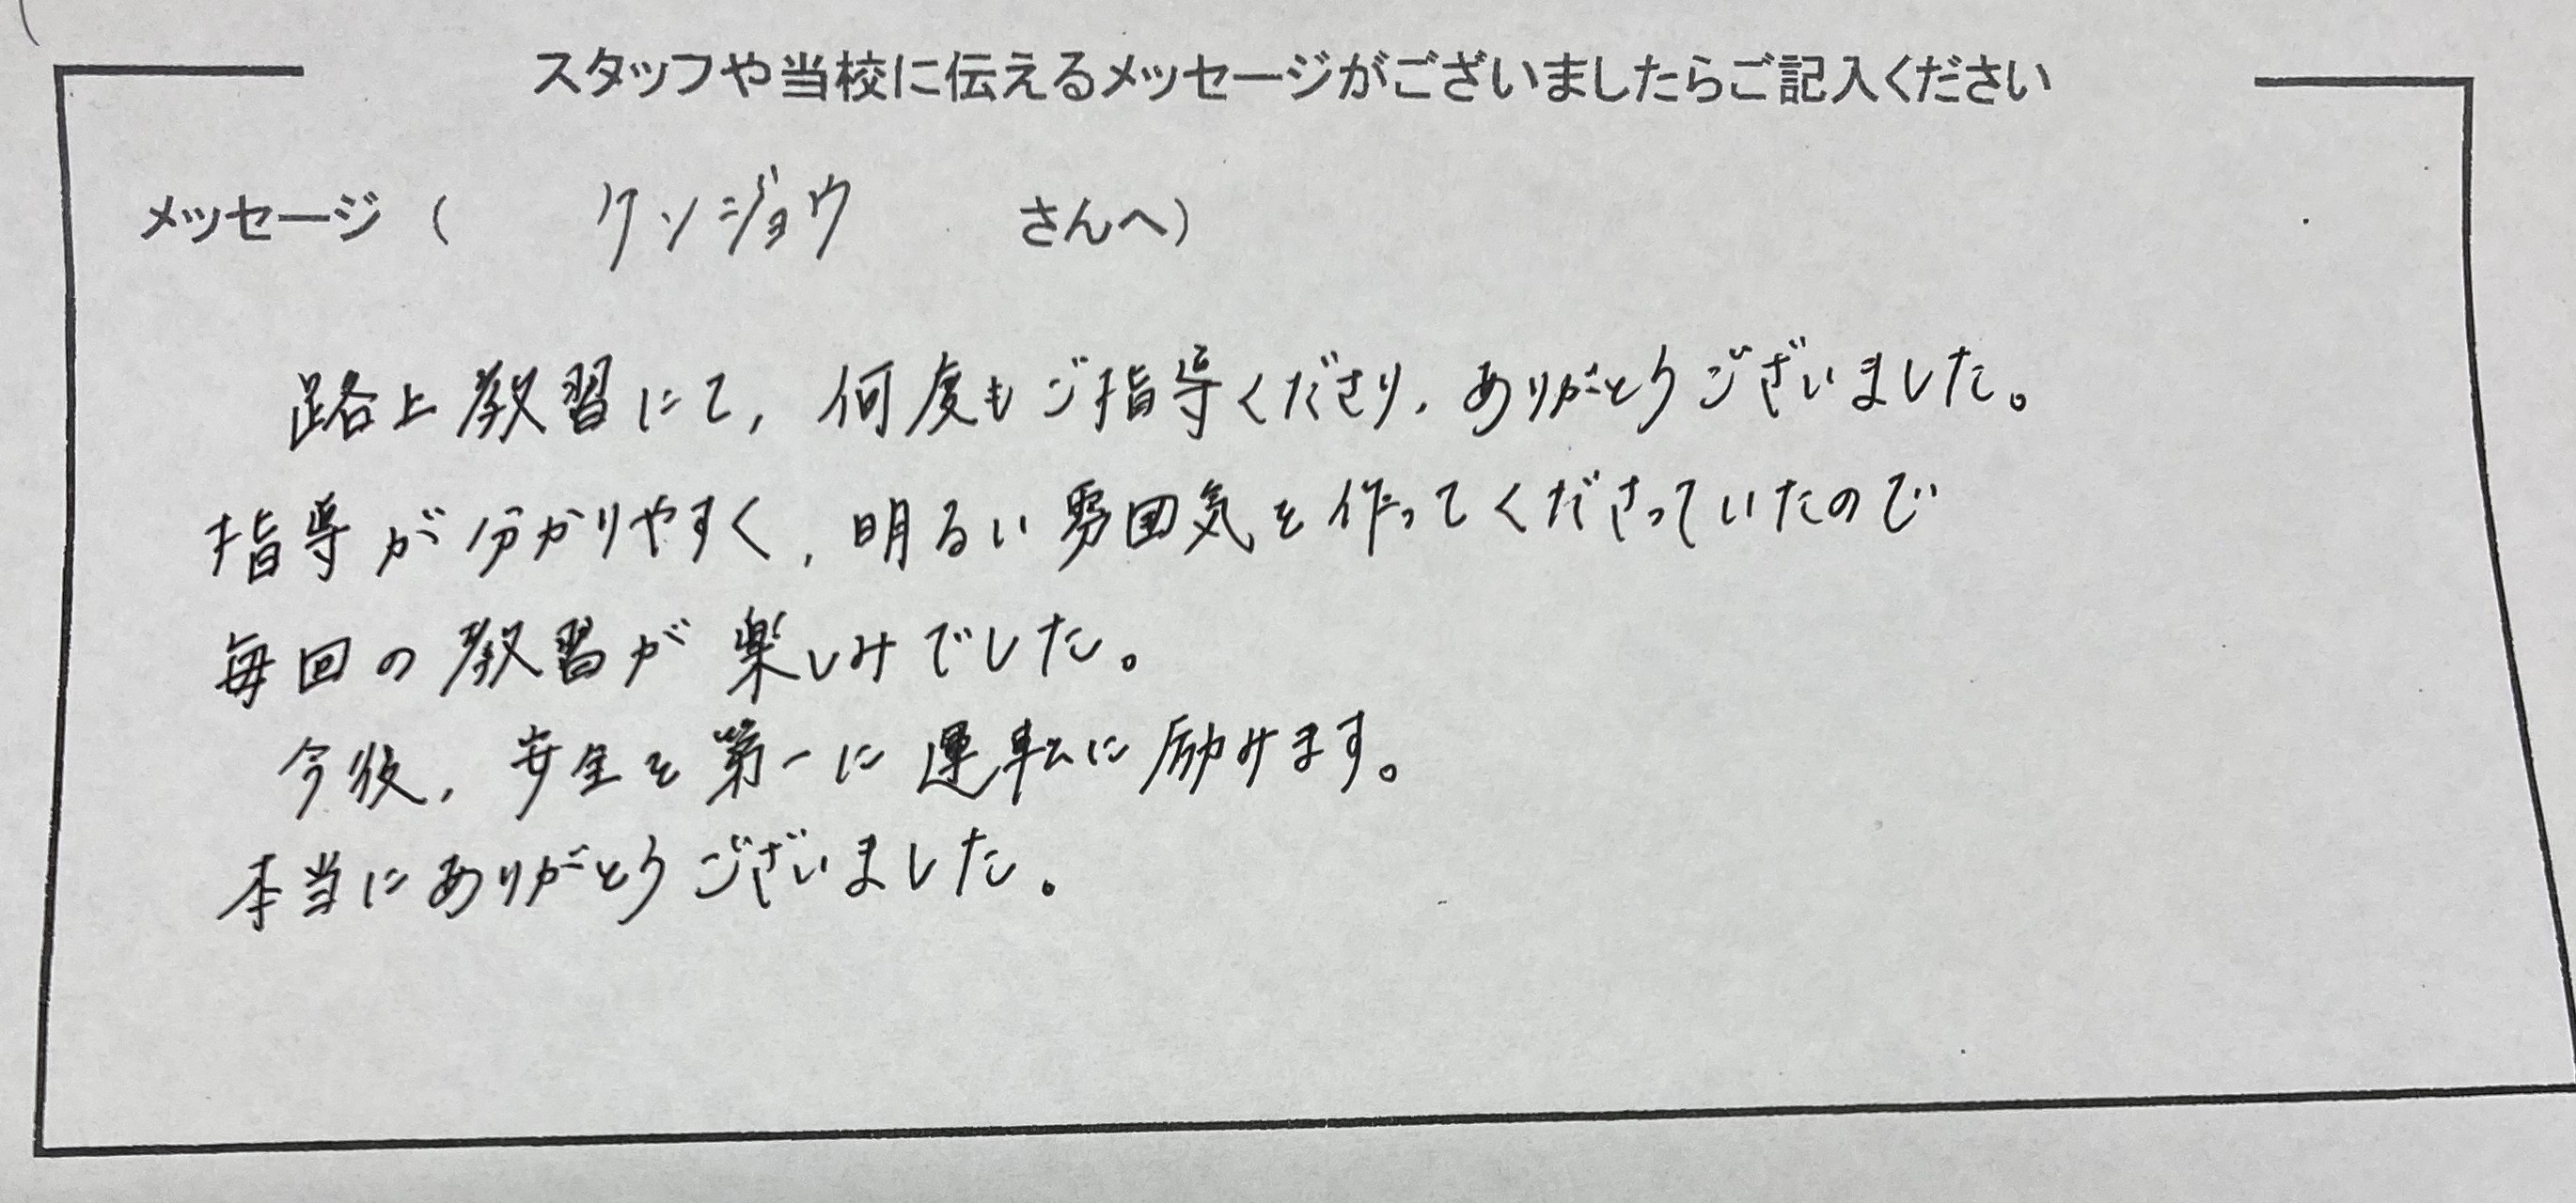 スタッフや当校に伝えるメッセージがございましたらご記入ください
メッセージ ( クンジョウ さんへ)
路上教習にて、何度もご指導くださり、ありがとうございました。
指導が分かりやすく、明るい雰囲気を作ってくださっていたので
毎回の教習が楽しみでした。
今後、安全を第一に運転に励みます。
本当にありがとうございました。